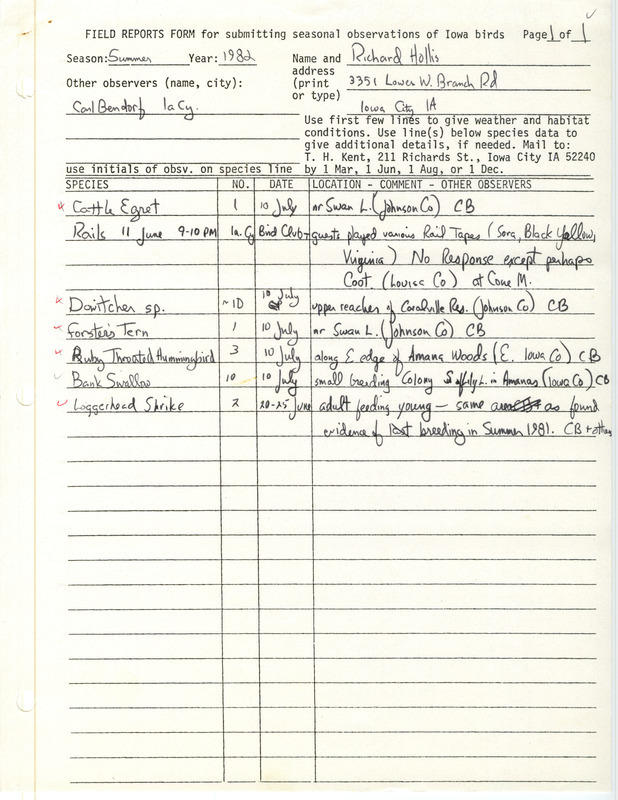 FIELD REPORTS FORM for submitting seasonal observations of Iowa birds Page 1 of 1
Season: Summer Year: 1982 Name and address (print or type) Richard Hollis
3351 Lower W. Branch Rd
Iowa City IA
Other observers (name, city):
Carl Bendorf Ia Cy.
Use first few lines to give weather and habitat
conditions. Use line(s) below species data to
give additional details, if needed. Mail to:
T. H. Kent, 211 Richards St., Iowa City IA 52240
use initials of obsv. on species line by 1 Mar, 1 Jun, 1 Aug, or 1 Dec.
SPECIES NO. DATE LOCATION - COMMENT - OTHER OBSERVERS
Cattle Egret 1 10 July nr Swan L. (Johnson Co) CB
Rails 11 June 9-10 PM Ia. Cy Bird Club - guests played various Rail Tapes (Sora, Black Yellow,
Virginia) No Response except perhaps
Coot. (Louisa Co) at Cone M.
Dowitcher sp. ~10 10 July upper reaches of Coralville Res. (Johnson Co) CB
Forster's Tern 1 10 July nr Swan L. (Johnson Co) CB
Ruby Throated Hummingbird 3 10 July along E edge of Amana Woods (E. Iowa Co) CB
Bank Swallow 10 10 July small breeding Colony S of Lily L. in Amanas (Iowa Co) CB
Loggerhead Shrike 2 20-25 June adult feeding young — same area as found
evidence of breeding in Summer 1981. CB + others